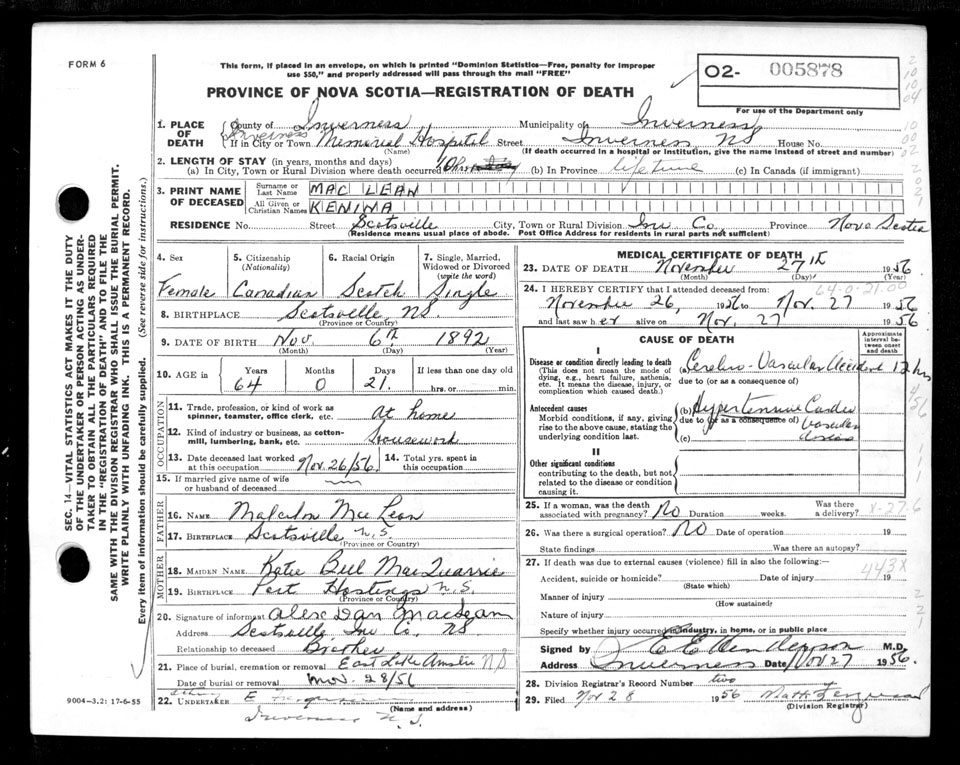 FORM 6
This form, if placed in an envelope, on which is printed "Dominion Statistics—Free, penalty for improper
use $50," and properly addressed will pass through the mail "FREE"
O2- 005878
For use of the Department only
PROVINCE OF NOVA SCOTIA—REGISTRATION OF DEATH
1. PLACE OF DEATH
County of Inverness Municipality of Inverness
If in City or Town Inverness Memorial Hospital Street Inverness NS House No.
(Name) (If death occurred in a hospital or institution, give the name instead of street and number)
2. LENGTH OF STAY (in years, months and days)
(a) In City, Town or Rural Division where death occurred 10 hrs (b) In Province lifetime (c) In Canada (if immigrant)
3. PRINT NAME OF DECEASED
Surname or Last Name MAC LEAN
All Given or Christian Names KENINA
RESIDENCE No. Street Scotsville City, Town or Rural Division Inv Co. Province Nova Scotia
(Residence means usual place of abode. Post Office Address for residents in rural parts not sufficient)
4. Sex Female
5. Citizenship (Nationality) Canadian
6. Racial Origin Scotch
7. Single, Married, Widowed or Divorced (write the word) Single
8. BIRTHPLACE Scotsville NS.
(Province or Country)
9. DATE OF BIRTH Nov. 6th 1892
(Month) (Day) (Year)
10. AGE in Years 64 Months 0 Days 21. If less than one day old hrs. or min.
OCCUPATION
11. Trade, profession, or kind of work as spinner, teamster, office clerk, etc. At home
12. Kind of industry or business, as cotton-mill, lumbering, bank, etc. Housework
13. Date deceased last worked at this occupation Nov. 26/56.
14. Total yrs. spent in this occupation
15. If married give name of wife or husband of deceased
FATHER
16. NAME Malcolm Mac Lean
17. BIRTHPLACE Scotsville N.S.
(Province or Country)
MOTHER
18. MAIDEN NAME Katie Bell MacQuarrie
19. BIRTHPLACE Port Hastings N.S.
(Province or Country)
20. Signature of informant Alex Dan MacLean
Address Scotsville Inv Co. NS.
Relationship to deceased Brother
21. Place of burial, cremation or removal East Lake Ainslie NS
Date of burial or removal Nov. 28/56
22. UNDERTAKER E
(Name and address)
Inverness N.S.
9004-3.2: 17-6-55
MEDICAL CERTIFICATE OF DEATH
23. DATE OF DEATH November 27th 1956
(Month) (Day) (Year)
64-0-21.00
24. I HEREBY CERTIFY that I attended deceased from:
November 26, 1956 to Nov. 27 1956
and last saw her alive on Nov. 27 1956
CAUSE OF DEATH
Approximate interval between onset and death
I
Disease or condition directly leading to death
(This does not mean the mode of dying, e.g., heart failure, asthenia, etc. It means the disease, injury, or complication which caused death.)
(a) Cerebro-Vascular Accident 12 hrs
due to (or as a consequence of)
Antecedent causes
Morbid conditions, if any, giving rise to the above cause, stating the underlying condition last.
(b) Hypertensive Cardio
due to (or as a consequence of) Vascular
(c) disease
II
Other significant conditions
contributing to the death, but not related to the disease or condition causing it.
25. If a woman, was the death associated with pregnancy? No Duration weeks. Was there a delivery?
26. Was there a surgical operation? No Date of operation 19
State findings Was there an autopsy?
27. If death was due to external causes (violence) fill in also the following:—
443X
Accident, suicide or homicide? Date of injury 19
(State which)
Manner of injury
(How sustained)
Nature of injury
Specify whether injury occurred in industry, in home, or in public place
Signed by C E Henderson M.D.
Address Inverness Date Nov 27 1956.
28. Division Registrar's Record Number two
29. Filed Nov 28 1956 Matt Ferguson
(Division Registrar)
SEC. 14—VITAL STATISTICS ACT MAKES IT THE DUTY
OF THE UNDERTAKER OR PERSON ACTING AS UNDER-
TAKER TO OBTAIN ALL THE PARTICULARS REQUIRED
IN THE "REGISTRATION OF DEATH" AND TO FILE THE
SAME WITH THE DIVISION REGISTRAR WHO SHALL ISSUE THE BURIAL PERMIT.
WRITE PLAINLY WITH UNFADING INK. THIS IS A PERMANENT RECORD.
Every item of information should be carefully supplied. (See reverse side for instructions.)